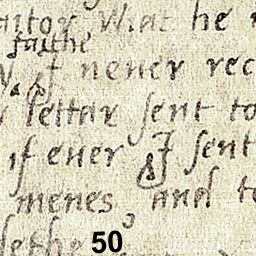 aitor what he
faithe
I never rec
lettar sent to
if ever I sent
menes and to
dethe
50